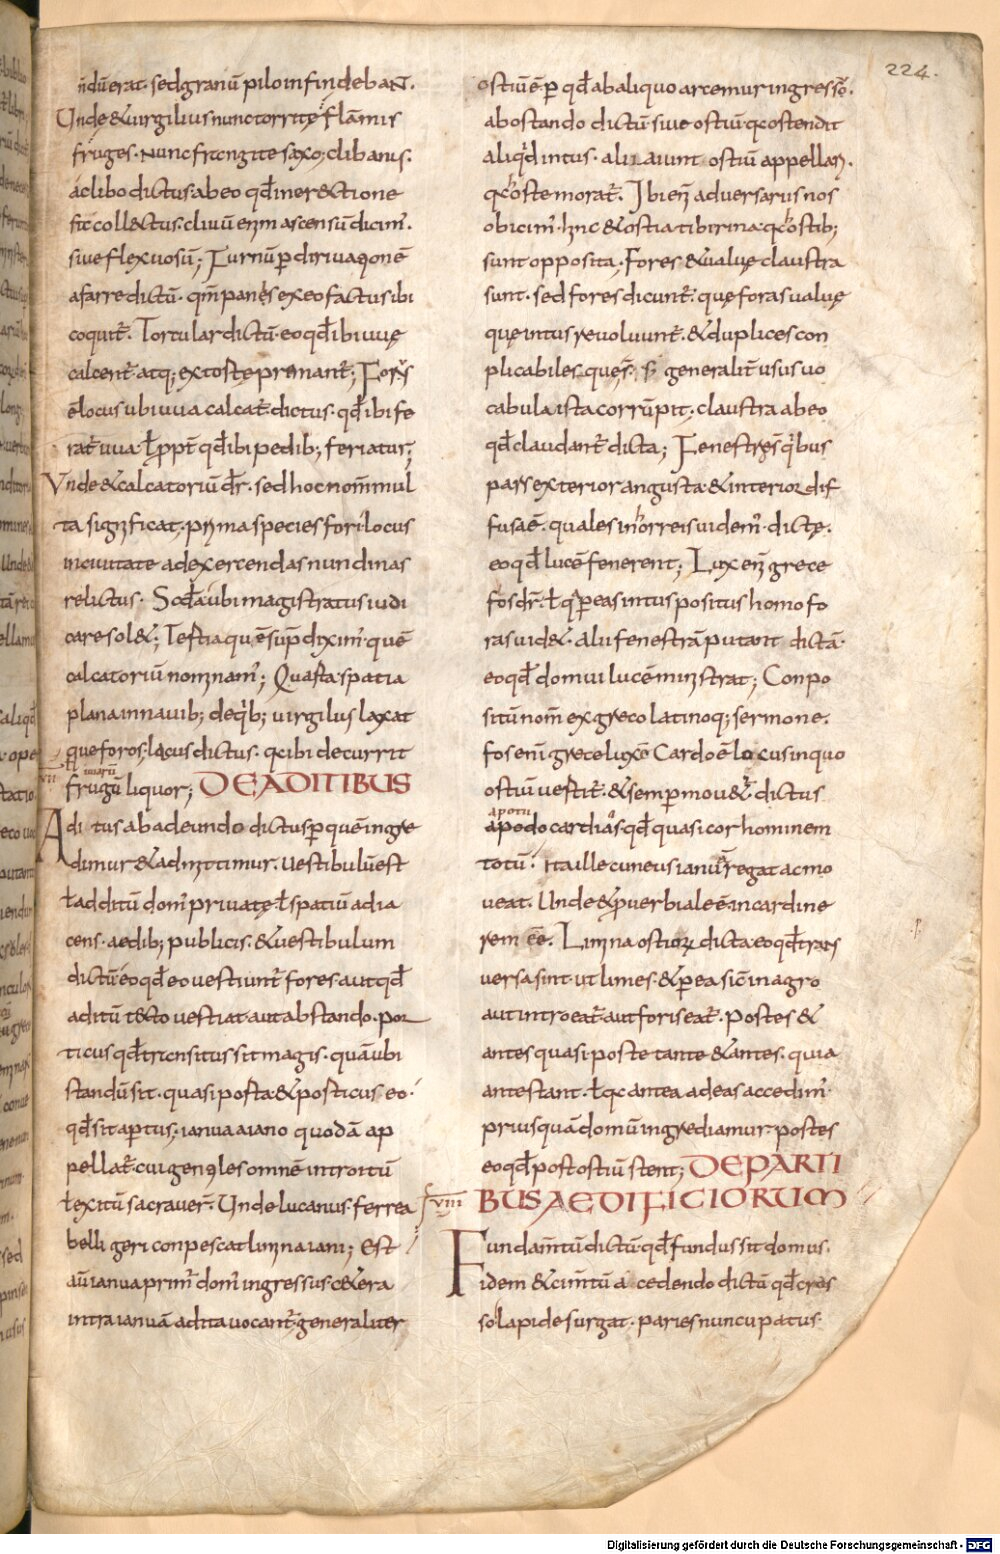 224.
ñ dūerat · sed granū pilo infindebant.
Unde & uirgilius nunc torrite flāmis
fruges · Nunc frangite saxo; clibanus.
aclibo dictus · ab eo qđ iner&ctione
sit coll&ctus · cliuū enim ascensū dicim̄.
siue flexuosū; Furnū p diriuationē
afarre dictū · qm̄ panes ex eo factus ibi
coquit̄. Tortular dictū eo qđ ibi uuę
calcent̄ atq; extostę premant̄; Forus
ē locus ubi uua calcat̄ dictus · qđ ibi fe
rat̄ uua · ł ppt̄ qđ ibi pedib; feriatus;
Unde & calcatoriū dr̄. sed hoc nom̄ mul
ta significat · prima species fori locus
inciuitate adexercendas nundinas
relictus · Scđa ubi magistratus iudi
care sol&; Testia quē sup diximꝰ · quē
calcatoriū nominamꝰ; Quarta spatia
plana innauib; deqb; uirgilius laxat
que foros; lacus dictus · qc ibi decurrit
frugū liquor; DE ADITIBUS
Aditus ab adeundo dictus p quē ingre
dimur & admittimur. Uestibulū est
ł additū dom̄ priuatę ł spatiū adia
cens · aedib; publicis · & uestibulum
dictū eo qđ eo uestiunt̄ fores · aut qđ
aditū t&cto uestiat aut abstando · por
ticus qđ transitus sit magis · quā ubi
standū sit · quasi porta · & porticus eo ·
qđ sit aptus; ianua aiano quodā ap
pellat̄ · cui gentiles omnē introitū
ł exitū sacrauer̄. Unde lucanus · ferrea
belli geri conpescat limina iani; Est
aū ianua primꝰ domꝰ ingressus · c&era
intra ianuā adita uocant̄ · generaliter
ostiū ē p qđ ab aliquo arcemur ingressu.
ab ostando dictū siue ostiū · qc ostendit
aliqđ intus · alii aiunt ostiū appellari.
qc hoste morat̄. Ibi enī aduersarus nos
obicimꝰ · hinc & ostia tiberina · qc hostib;
sunt opposita · Fores & ualuę claustra
sunt · sed fores dicunt̄ · quę foras ualuę
quę intus reuoluunt̄ · & duplices con
plicabiles quęs̄. s; generalit̄ usus uo
cabula ista corrūpit · claustra ab eo
qđ claudant̄ dicta; Fenestręs qbus
pars exterior angusta · & interior dif
fusa ē · quales in horreis uidemꝰ · dictę ·
eo qđ lucē fenerent; Lux enī grece
fos dr̄ · ł q p eas intus positus homo fo
ras uid& · alii fenestrā putant dictā ·
eo qđ domui lucē ministrat; Conpo
situ nom̄ ex greco latinoq; sermone ·
fos enī grece luxē Cardo ē locus inquo
ostiū uertit̄ · & semp mou&ur · dictus
apodo cardias qđ quasi cor hominem
totū · Ita ille cuneus ianuā regat ac mo
ueat · Unde & puerbiale ē incardine
rem ēē. Limina ostiorū dicta eo qđ trans
uersa sint · ut limes · & p ea sic̄ in agro
aut introeat̄ aut foris eat̄ · Postes &
antes quasi poste tante & antes · quia
antestant · ł qc antea adeas accedimꝰ ·
priusquā domū ingrediamur · postes
eo qđ post ostiū stent; DE PARTI
VIII BUS AEDIFICIORUM
Fundam̄tū dictū qđ fundus sit domus.
Fidem & cim̄tū a cedendo dictū qđ cras
so lapide surgat · paries nuncupatus ·
Digitalisierung gefördert durch die Deutsche Forschungsgemeinschaft - DFG